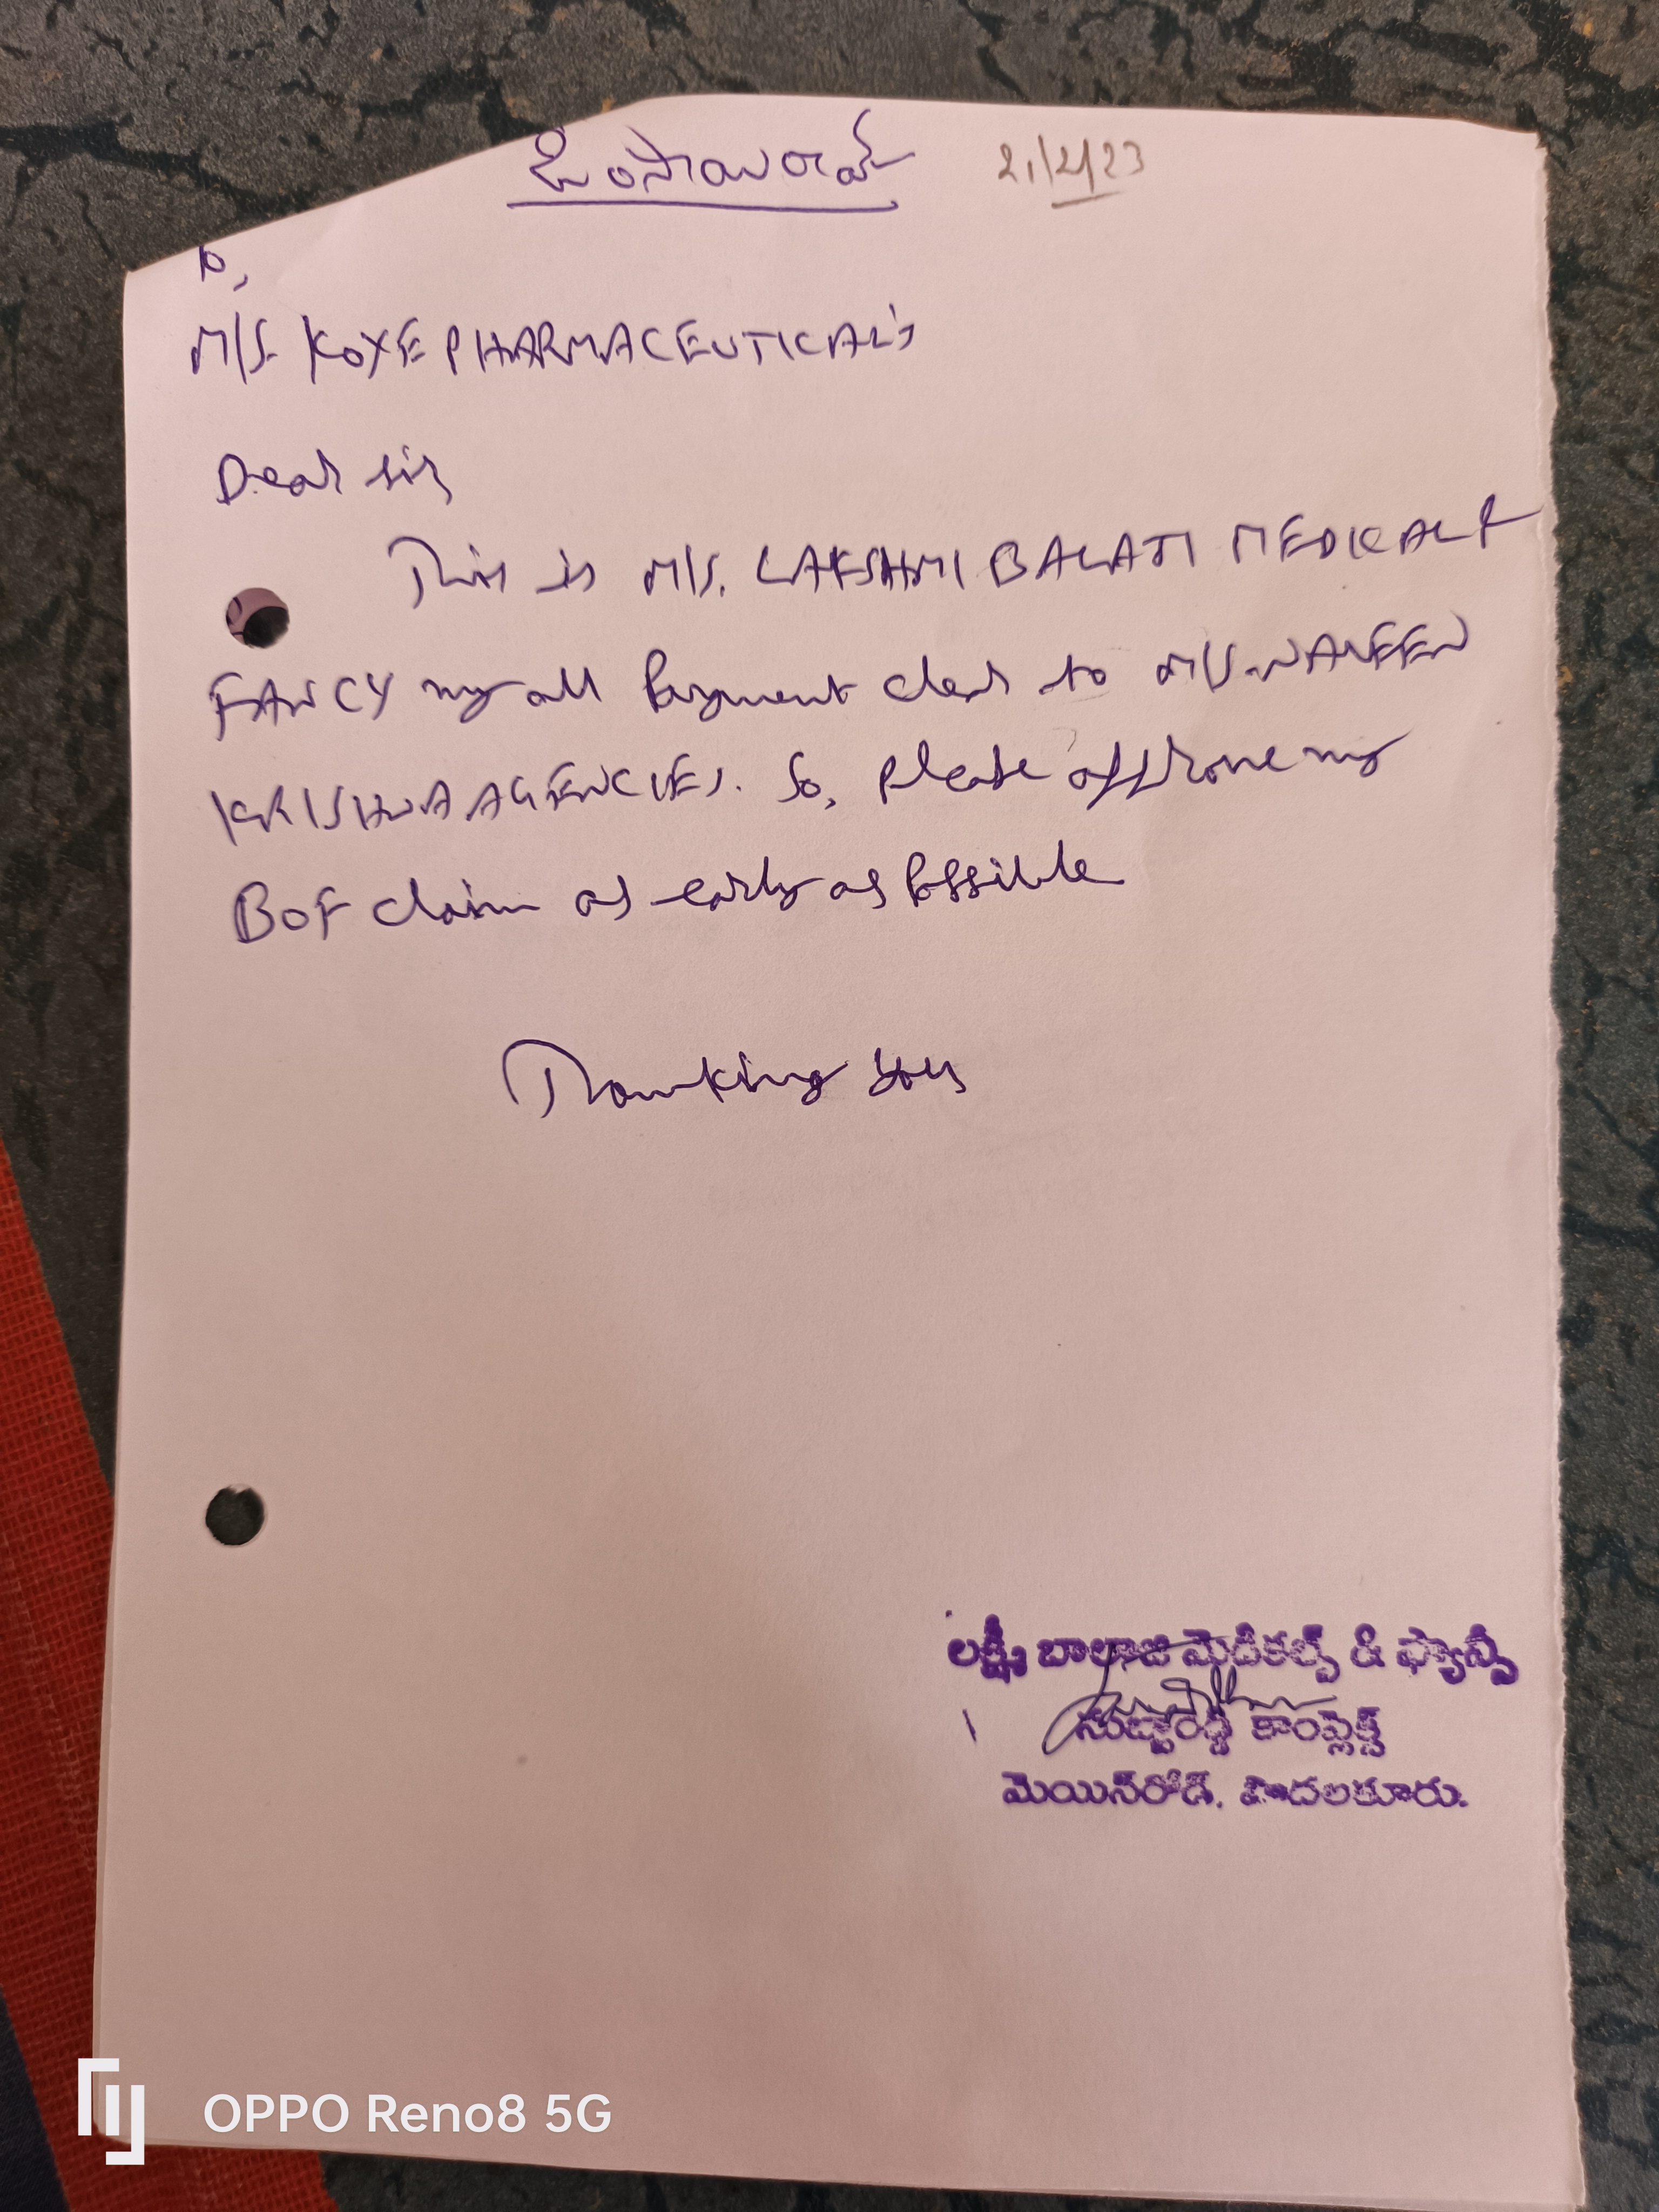 ఓం సాయిరామ్
21/2/23
To,
M/S. KOYE PHARMACEUTICAL'S
Dear Sir
This is M/S. LAKSHMI BALAJI MEDICAL &
FANCY my all Payment clear to M/S. NAVEEN
KRISHNA AGENCIES. So, Please approve my
BOF claim as early as Possible
Thanking you
లక్ష్మీ బాలాజి మెడికల్స్ & ఫ్యాన్సీ
కాంప్లెక్స్
మెయిన్‌రోడ్, పొదలకూరు.
OPPO Reno8 5G